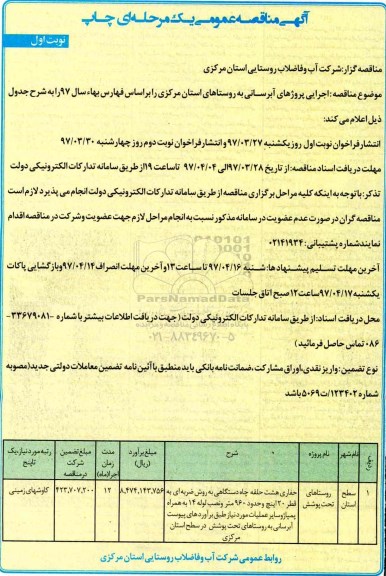 آگهی مناقصه عمومی یک مرحله‌ای چاپ
نوبت اول
مناقصه گزار: شرکت آب و فاضلاب روستایی استان مرکزی
موضوع مناقصه: اجرایی پروژهای آبرسانی به روستاهای استان مرکزی را بر اساس فهارس بهاء سال ۹۷ را به شرح جدول
ذیل اعلام می کند:
انتشار فراخوان نوبت اول روز یکشنبه ۹۷/۰۳/۲۷ و انتشار فراخوان نوبت دوم روز چهارشنبه ۹۷/۰۳/۳۰
مهلت دریافت اسناد مناقصه: از تاریخ ۹۷/۰۳/۲۸ الی ۹۷/۰۴/۰۴ تا ساعت ۱۹ از طریق سامانه تدارکات الکترونیکی دولت
تذکر: با توجه به اینکه کلیه مراحل برگزاری مناقصه از طریق سامانه تدارکات الکترونیکی دولت انجام می پذیرد لازم است
مناقصه گران در صورت عدم عضویت در سامانه مذکور نسبت به انجام مراحل لازم جهت عضویت و شرکت در مناقصه اقدام
نمایند شماره پشتیبانی: ۰۲۱۴۱۹۳۴
آخرین مهلت تسلیم پیشنهادها: شنبه ۹۷/۰۴/۱۶ تا ساعت ۱۳ و آخرین مهلت انصراف ۹۷/۰۴/۱۴ و بازگشایی پاکات
یکشنبه ۹۷/۰۴/۱۷ ساعت ۱۲ صبح اتاق جلسات
محل دریافت اسناد: از طریق سامانه تدارکات الکترونیکی دولت (جهت دریافت اطلاعات بیشتر با شماره ۳۳۶۷۹۰۸۱-
۰۸۶ تماس حاصل فرمائید)
نوع تضمین: واریز نقدی، اوراق مشارکت، ضمانت نامه بانکی باید منطبق با آئین نامه تضمین معاملات دولتی جدید (مصوبه
شماره ۱۲۳۴۰۲/ت۵۰۶۹ باشد
ParsNamadData
۰۲۱-۸۸۳۴۹۶۷۰-۵
ردیف
نام شهر
نام پروژه
شرح
مبلغ برآورد (ریال)
مدت زمان اجرا(ماه)
مبلغ تضمین شرکت در مناقصه
رتبه مورد نیاز، یک تا پنج
۱
سطح استان
روستاهای تحت پوشش
حفاری هشت حلقه چاه دستگاهی به روش ضربه ای به
قطر ۲۰ اینچ و حدود ۹۶۰ متر و نصب لوله ۱۴ به همراه
پمپاژ و سایر عملیات مورد نیاز طبق برآوردهای پیوست
آبرسانی به روستاهای تحت پوشش در سطح استان
مرکزی
۸,۴۷۴,۱۴۳,۷۵۶
۱۲
۴۲۳,۷۰۷,۲۰۰
کاوشهای زمینی
روابط عمومی شرکت آب و فاضلاب روستایی استان مرکزی